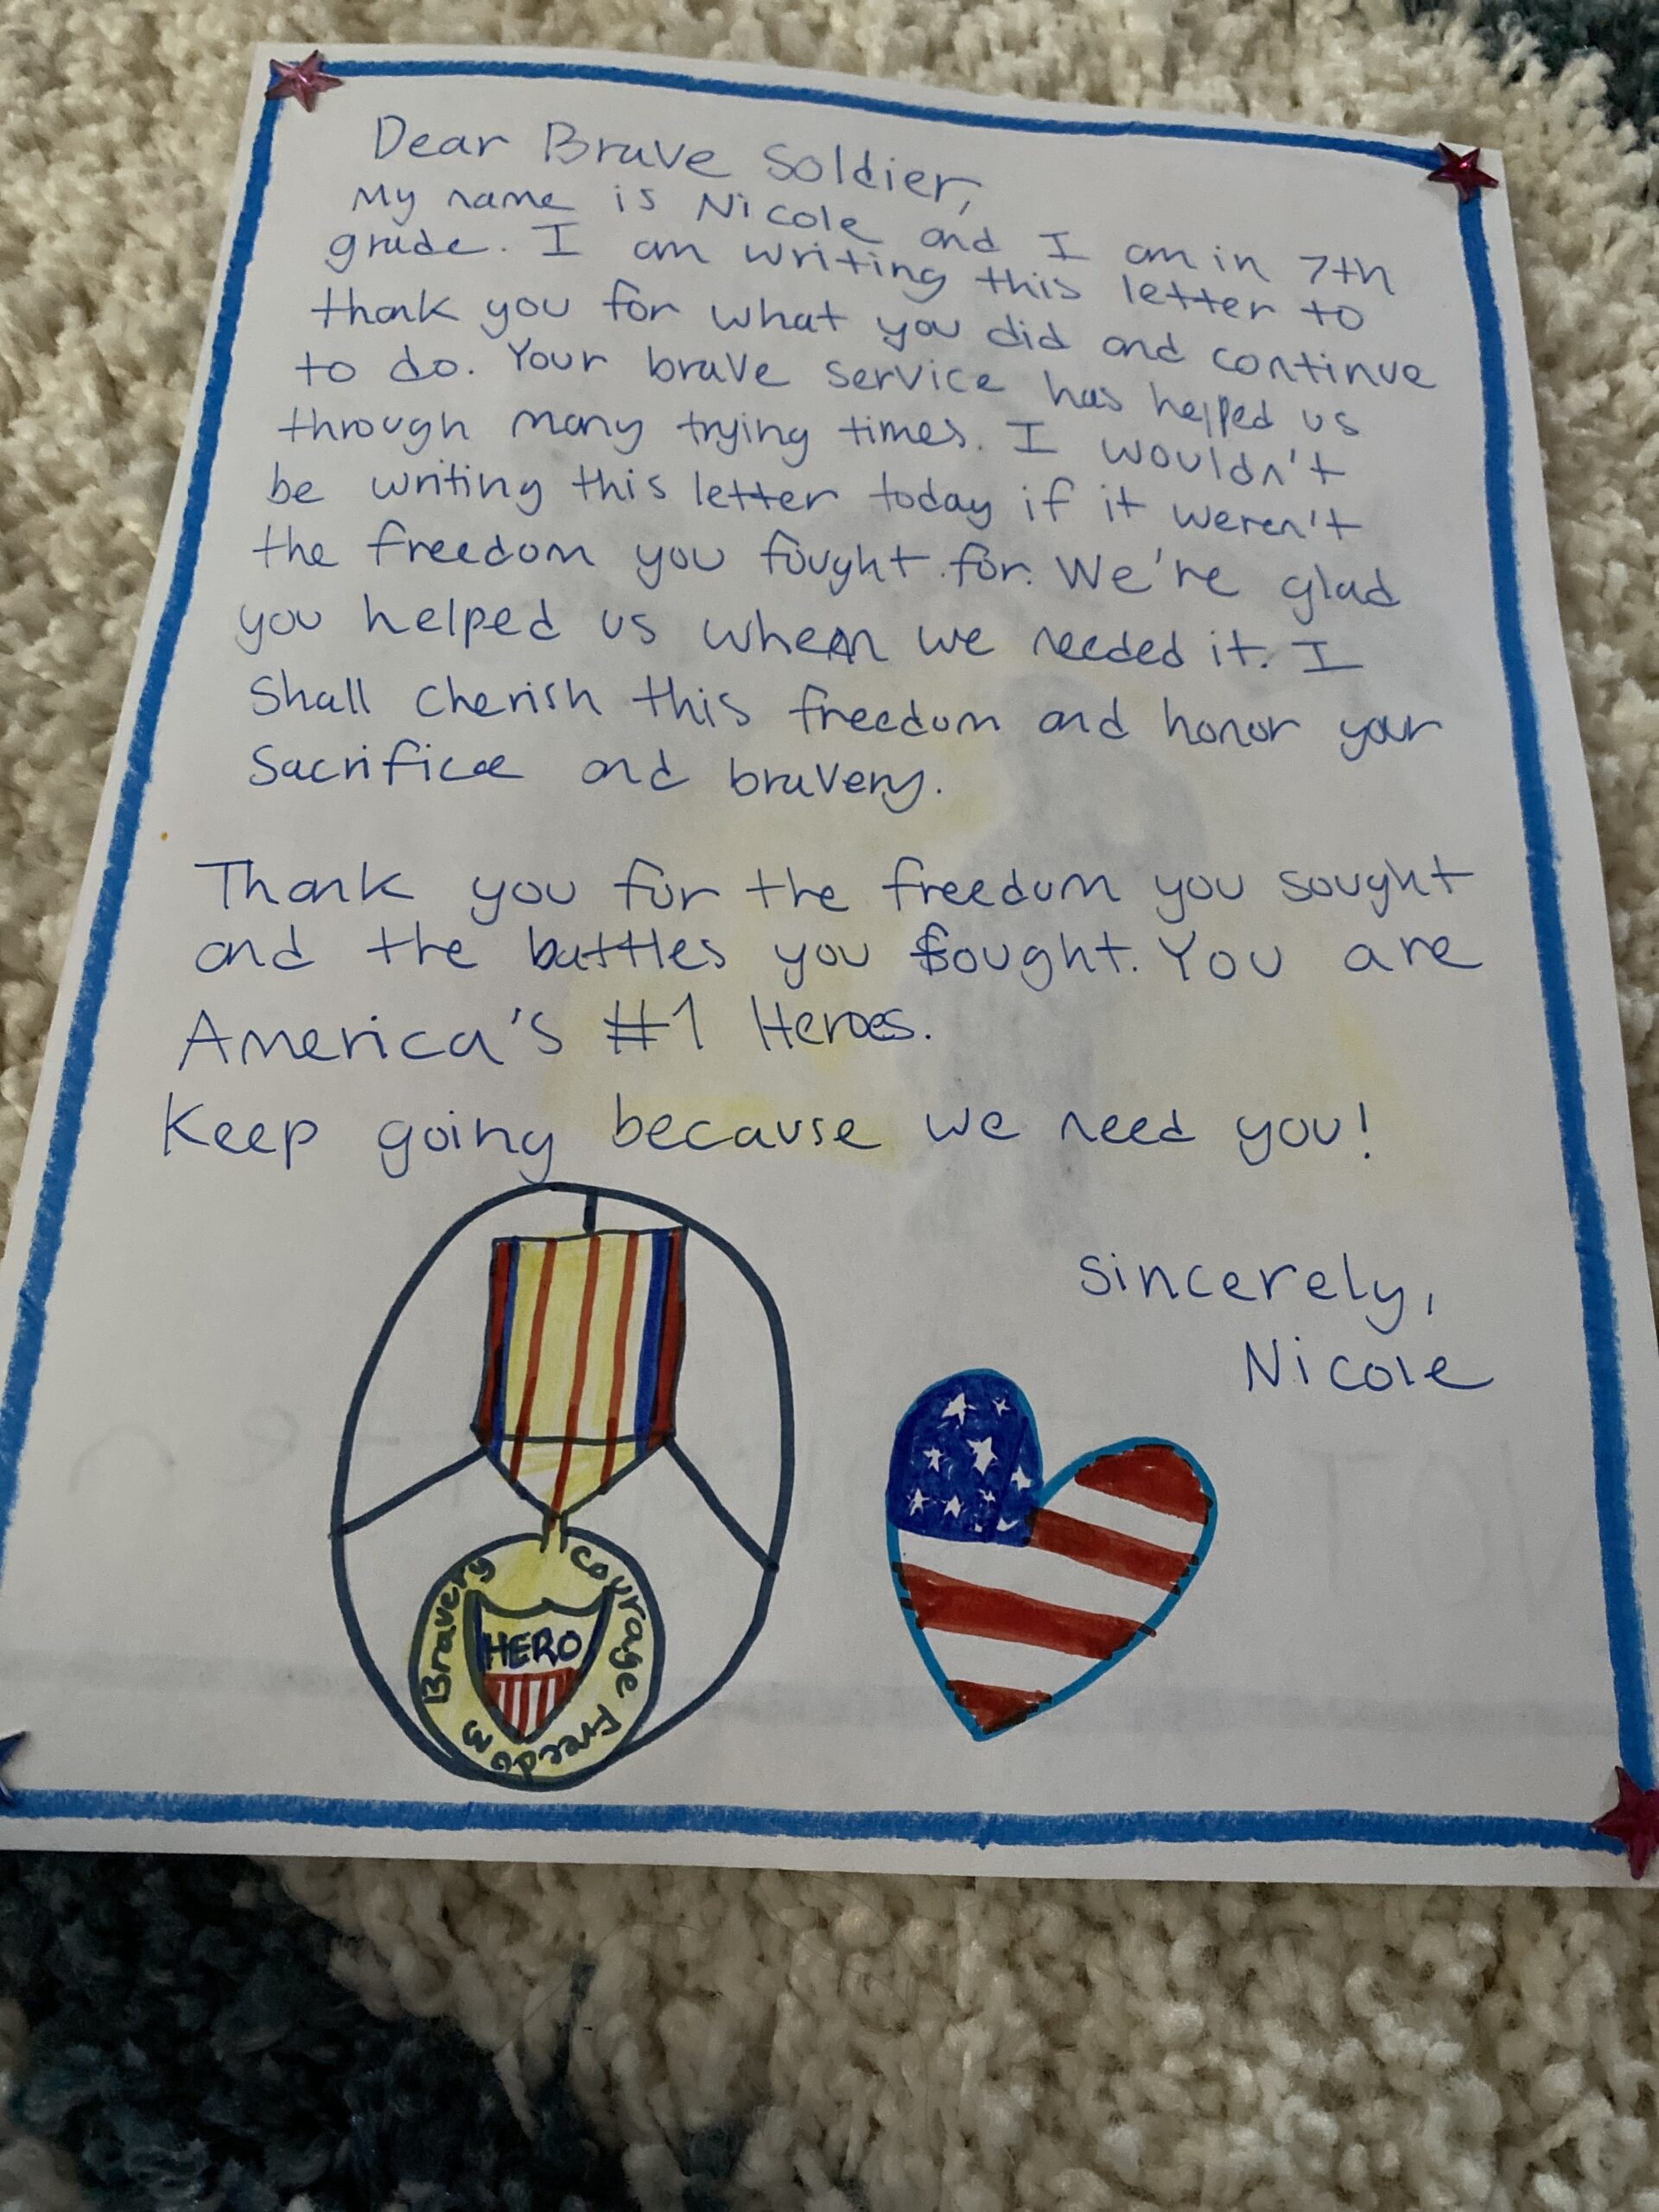 Dear Brave Soldier,
My name is Nicole and I am in 7th
grade. I am writing this letter to
thank you for what you did and continue
to do. Your brave service has helped us
through many trying times. I wouldn't
be writing this letter today if it weren't
the freedom you fought for. We're glad
you helped us when we needed it. I
Shall cherish this freedom and honor your
Sacrifice and bravery.
Thank you for the freedom you sought
and the battles you fought. You are
America's #1 Heroes.
Keep going because we need you!
Sincerely,
Nicole
Bravery
Courage
Freedom
HERO